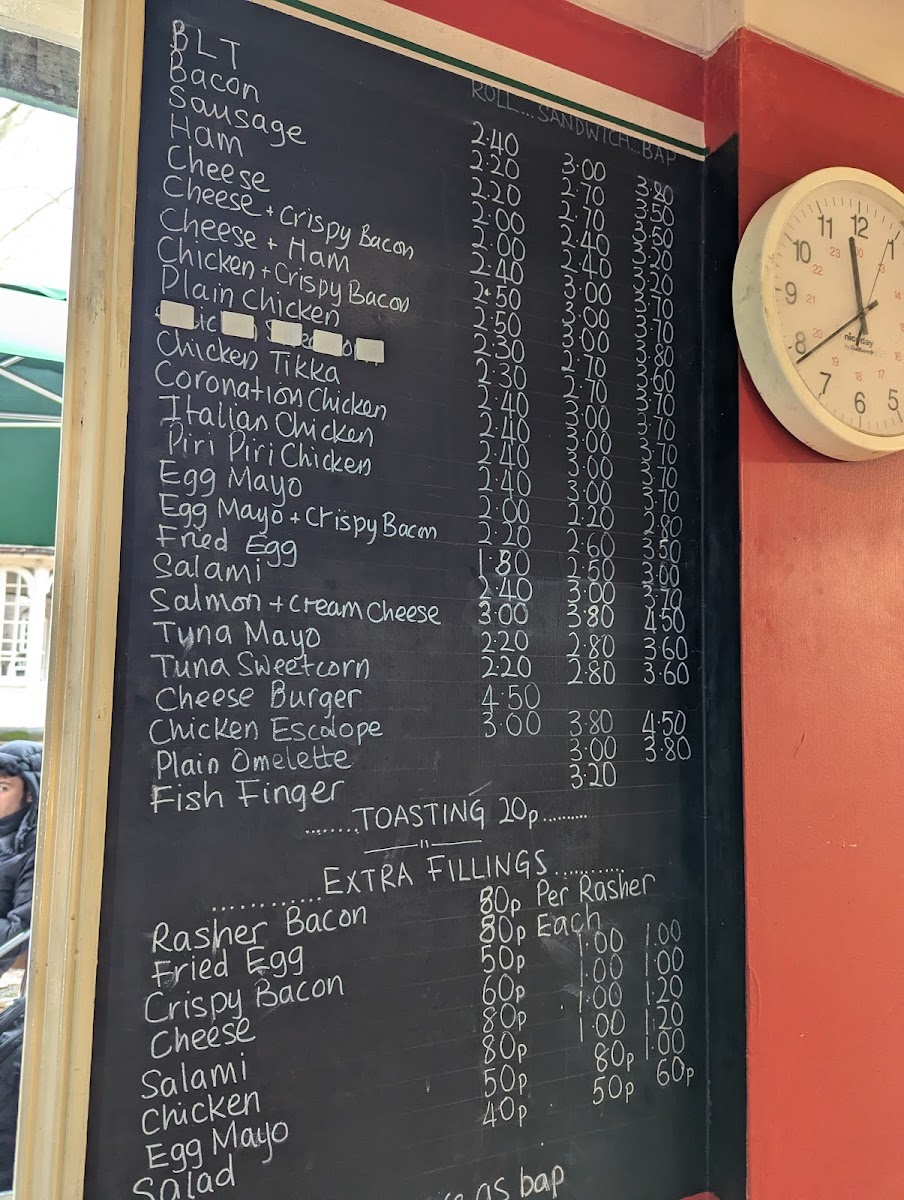 ROLL... SANDWICH... BAP
BLT 2.40 3.00 3.80
Bacon 2.20 2.70 3.50
Sausage 2.20 2.70 3.50
Ham 2.00 2.40 3.20
Cheese 2.00 2.40 3.20
Cheese + Crispy Bacon 2.40 3.00 3.70
Cheese + Ham 2.50 3.00 3.70
Chicken + Crispy Bacon 2.50 3.00 3.80
Plain Chicken 2.30 2.70 3.60
2.30 2.70 3.70
Chicken Tikka 2.40 3.00 3.70
Coronation Chicken 2.40 3.00 3.70
Italian Chicken 2.40 3.00 3.70
Piri Piri Chicken 2.40 3.00 3.70
Egg Mayo 2.00 2.20 2.80
Egg Mayo + Crispy Bacon 2.20 2.60 3.50
Fried Egg 1.80 2.50 3.00
Salami 2.40 3.00 3.70
Salmon + Cream Cheese 3.00 3.80 4.50
Tuna Mayo 2.20 2.80 3.60
Tuna Sweetcorn 2.20 2.80 3.60
Cheese Burger 4.50
Chicken Escalope 3.00 3.80 4.50
Plain Omelette 3.00 3.80
Fish Finger 3.20
........TOASTING 20p.........
"
............EXTRA FILLINGS............
Rasher Bacon 80p Per Rasher
Fried Egg 80p Each
Crispy Bacon 50p 1.00 1.00
Cheese 60p 1.00 1.00
Salami 80p 1.00 1.20
Chicken 80p 1.00 1.20
Egg Mayo 50p 80p 1.00
Salad 40p 50p 60p
as bap
12 1 5 6 7 8 9 10 11